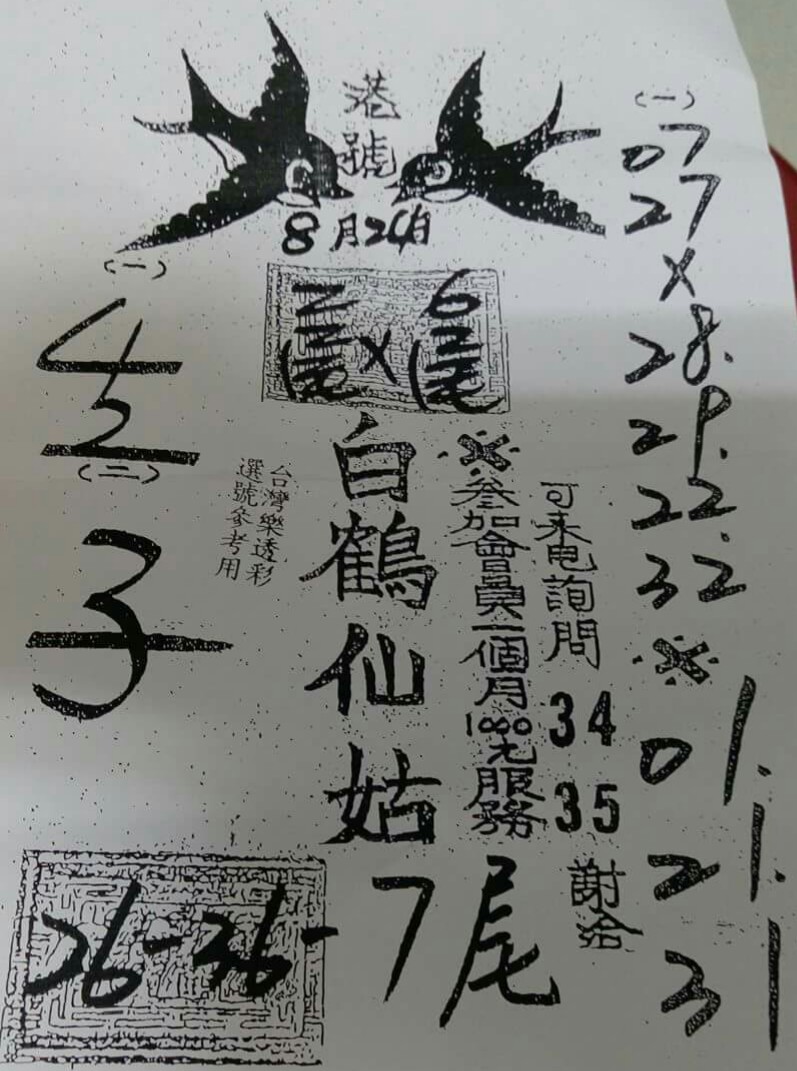 港號
8月24日
(一)
(二)
子
台灣樂透彩
選號參考用
白鶴仙姑
※參加會員一個月1000元服務
可来电詢問
34
35
謝洽
26-36-7尾
(一)
07
27
x
28.
29.
22.
32
※
01.
21.
31